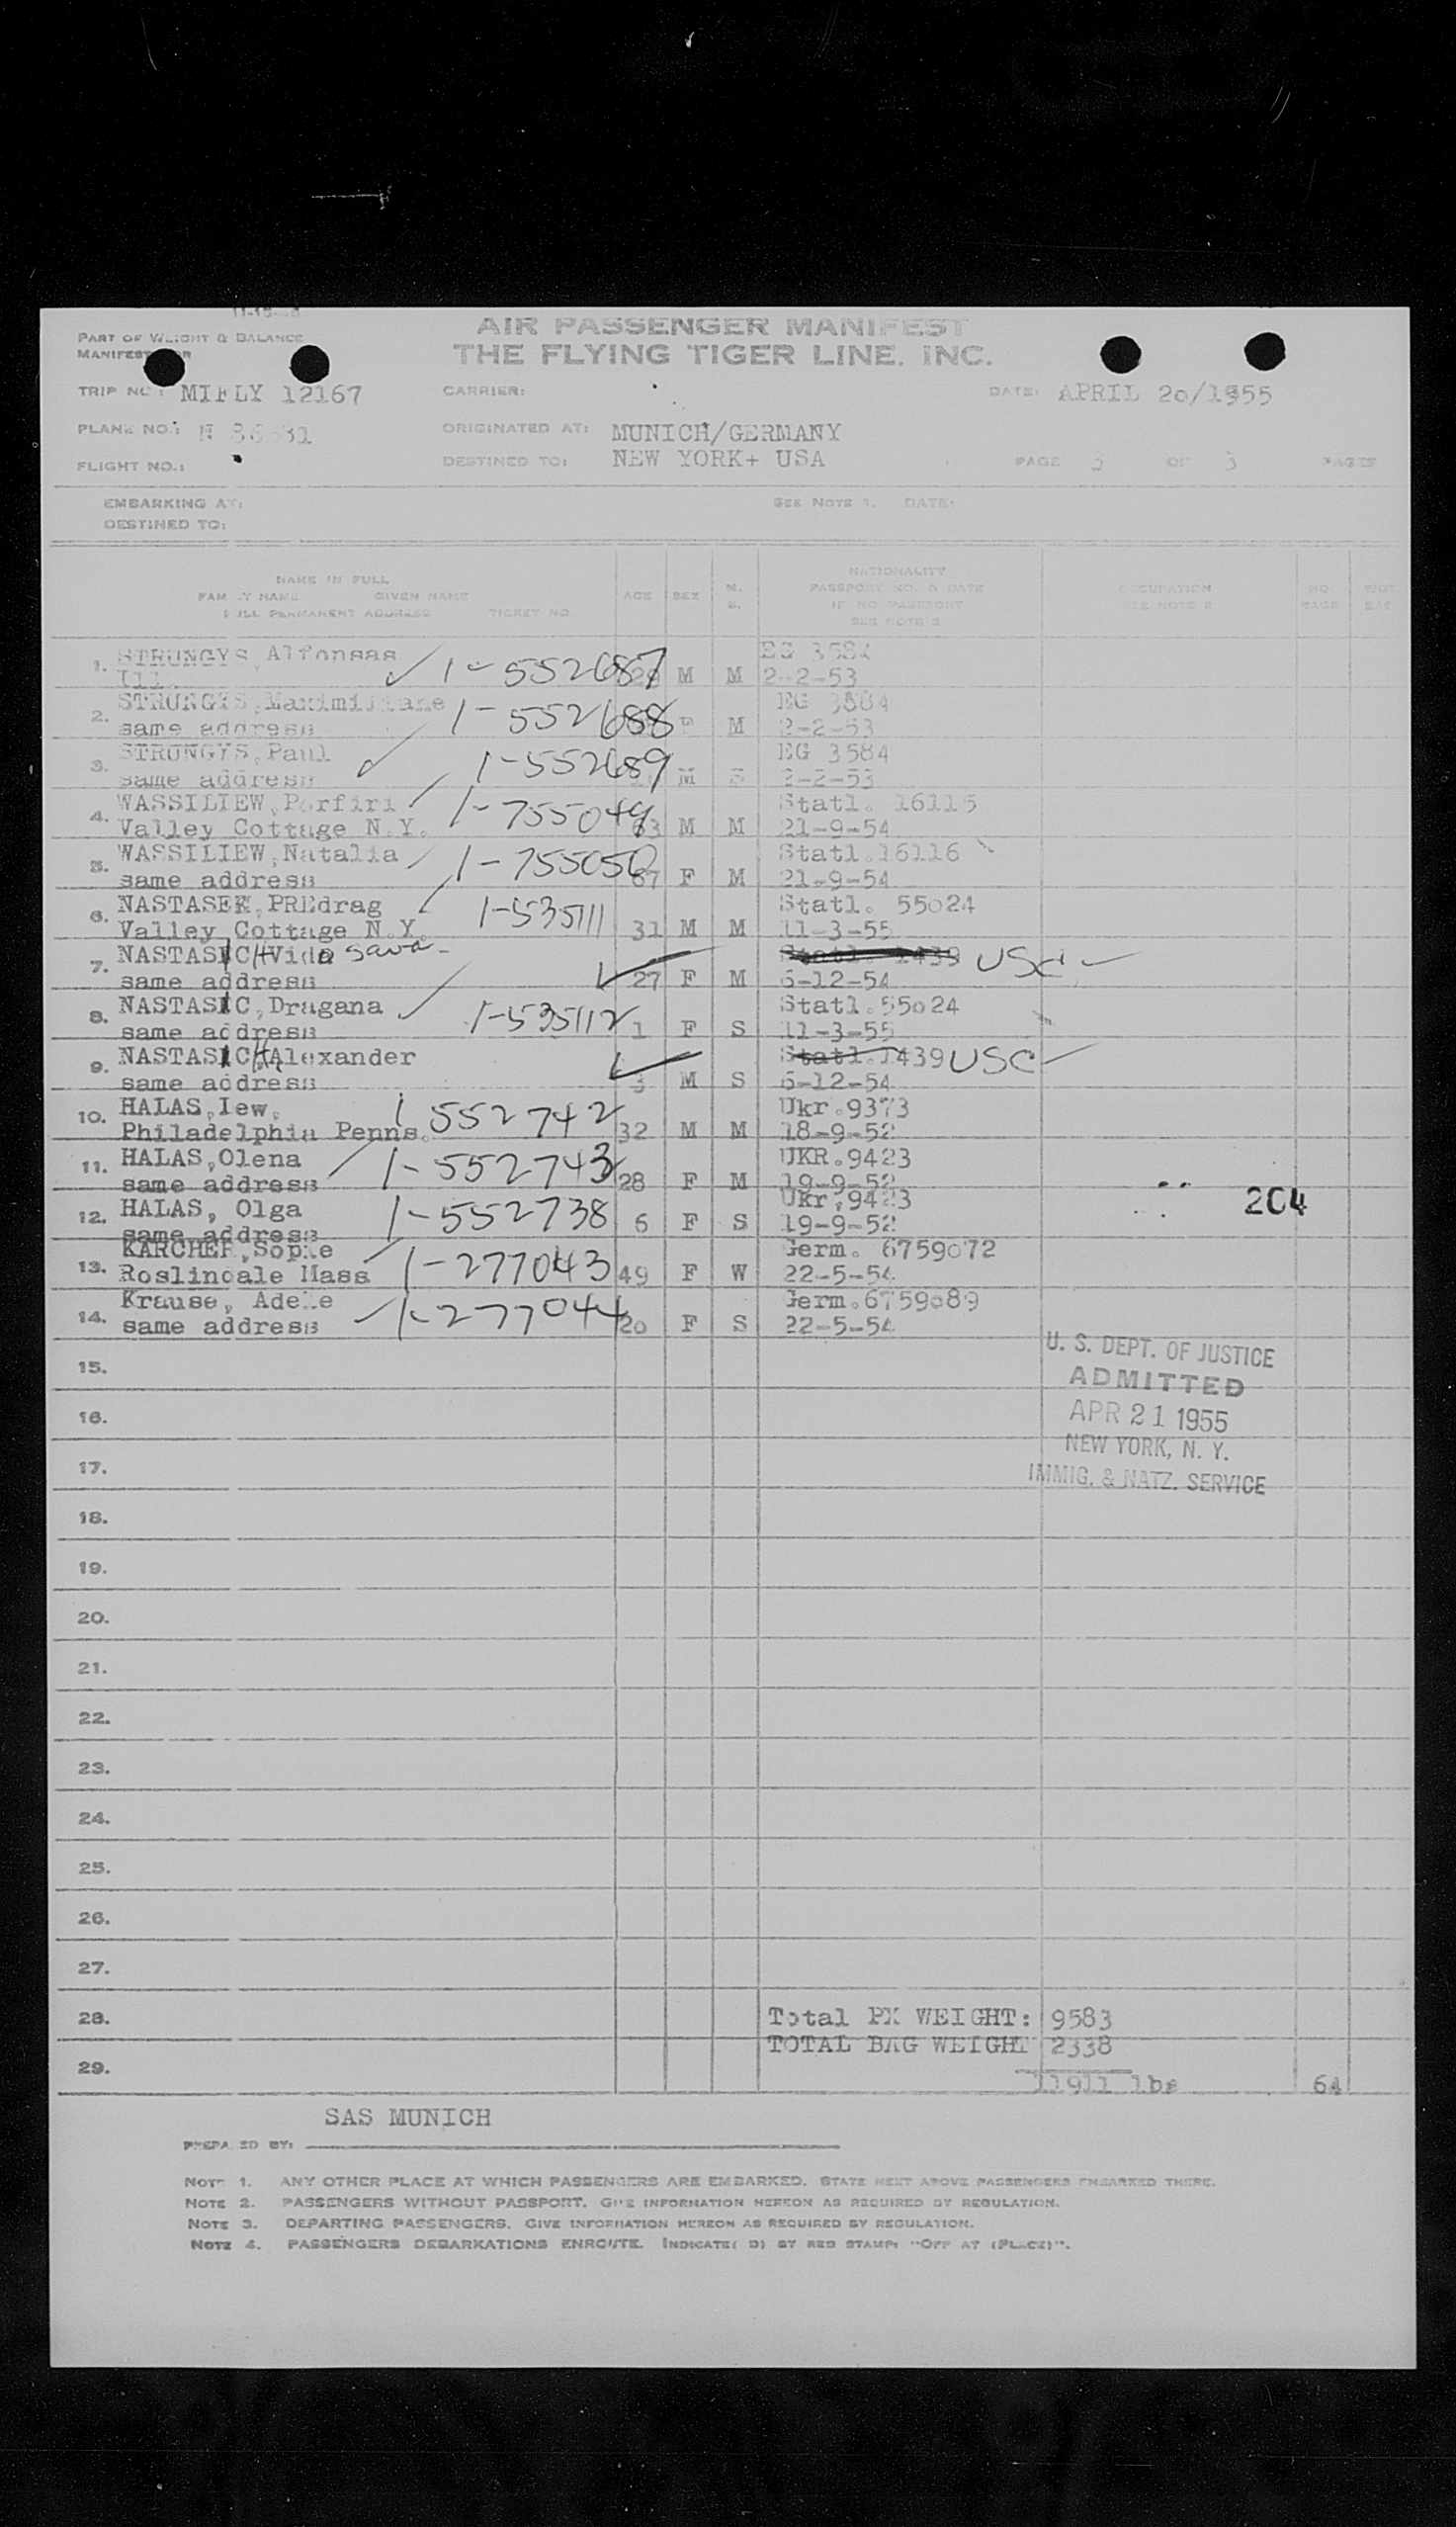 AIR PASSENGER MANIFEST
THE FLYING TIGER LINE, INC.
PART OF WEIGHT & BALANCE
MANIFEST
TRIP NO.: MIFLY 12167 CARRIER: DATE: APRIL 20/1955
PLANE NO.: ORIGINATED AT: MUNICH/GERMANY
FLIGHT NO.: DESTINED TO: NEW YORK+ USA PAGE 3 OF 3 PAGES
EMBARKING AT: SEE NOTE 1. DATE:
DESTINED TO:
NAME IN FULL
FAMILY NAME GIVEN NAME
FULL PERMANENT ADDRESS TICKET NO.
AGE SEX M. S.
NATIONALITY
PASSPORT NO. & DATE
IF NO PASSPORT
SEE NOTE 2
OCCUPATION
SEE NOTE 3
NO. BAGS
WGT. BAG
1. STRUNGYS, Alfonsas EG 3584
Ill. 1-552687 M M 2-2-53
2. STRUNGYS, Maximiliane 1-552688 EG 3584
same address M 2-2-53
3. STRUNGYS, Paul 1-552689 EG 3584
same address M S 2-2-53
4. WASSILIEW, Porfiri 1-755049 Statl. 16115
Valley Cottage N.Y. 63 M M 21-9-54
5. WASSILIEW, Natalia 1-755050 Statl.16116
same address 67 F M 21-9-54
6. NASTASEK, PREdrag 1-535111 Statl. 55024
Valley Cottage N.Y. 31 M M 11-3-55
7. NASTASICH Vido sava Statl. 1439 USC
same address 27 F M 6-12-54
8. NASTASIC, Dragana 1-535112 Statl.55024
same address 1 F S 11-3-55
9. NASTASICH, Alexander Statl.1439 USC
same address 3 M S 6-12-54
10. HALAS, Iew, 1 552742 Ukr.9373
Philadelphia Penns. 32 M M 18-9-52
11. HALAS, Olena 1-552743 UKR.9423
same address 28 F M 19-9-52
12. HALAS, Olga 1-552738 Ukr.9423 204
same address 6 F S 19-9-52
13. KARCHER, Sopie 1-277043 Germ. 6759072
Roslindale Mass 49 F W 22-5-54
14. Krause, Adele 1-277044 Germ.6759089
same address 20 F S 22-5-54
U. S. DEPT. OF JUSTICE
15. ADMITTED
16. APR 21 1955
NEW YORK, N. Y.
17. IMMIG. & NATZ. SERVICE
18.
19.
20.
21.
22.
23.
24.
25.
26.
27.
28. Total PX WEIGHT: 9583
TOTAL BAG WEIGHT 2338
29. 11911 lbs 64
SAS MUNICH
PREPARED BY:
NOTE 1. ANY OTHER PLACE AT WHICH PASSENGERS ARE EMBARKED. STATE NEXT ABOVE PASSENGERS EMBARKED THERE.
NOTE 2. PASSENGERS WITHOUT PASSPORT. GIVE INFORMATION HEREON AS REQUIRED BY REGULATION.
NOTE 3. DEPARTING PASSENGERS. GIVE INFORMATION HEREON AS REQUIRED BY REGULATION.
NOTE 4. PASSENGERS DEBARKATIONS ENROUTE. INDICATE( D) BY RED STAMP: "OFF AT (PLACE)".